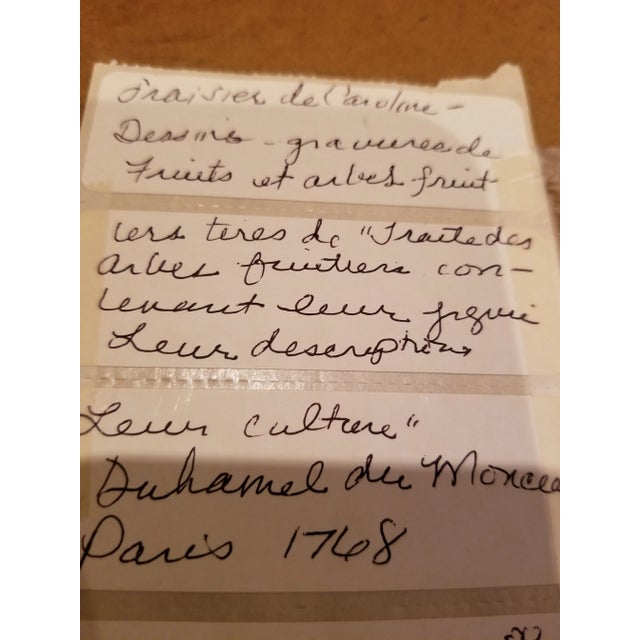 Fraisier de Caroline -
Dessins - gravures de
Fruits et arbes fruit
iers tires de "Traite des
arbes fruitiers con -
tenant leur figure
Leur description
Leur culture"
Duhamel du Moncea
Paris 1768